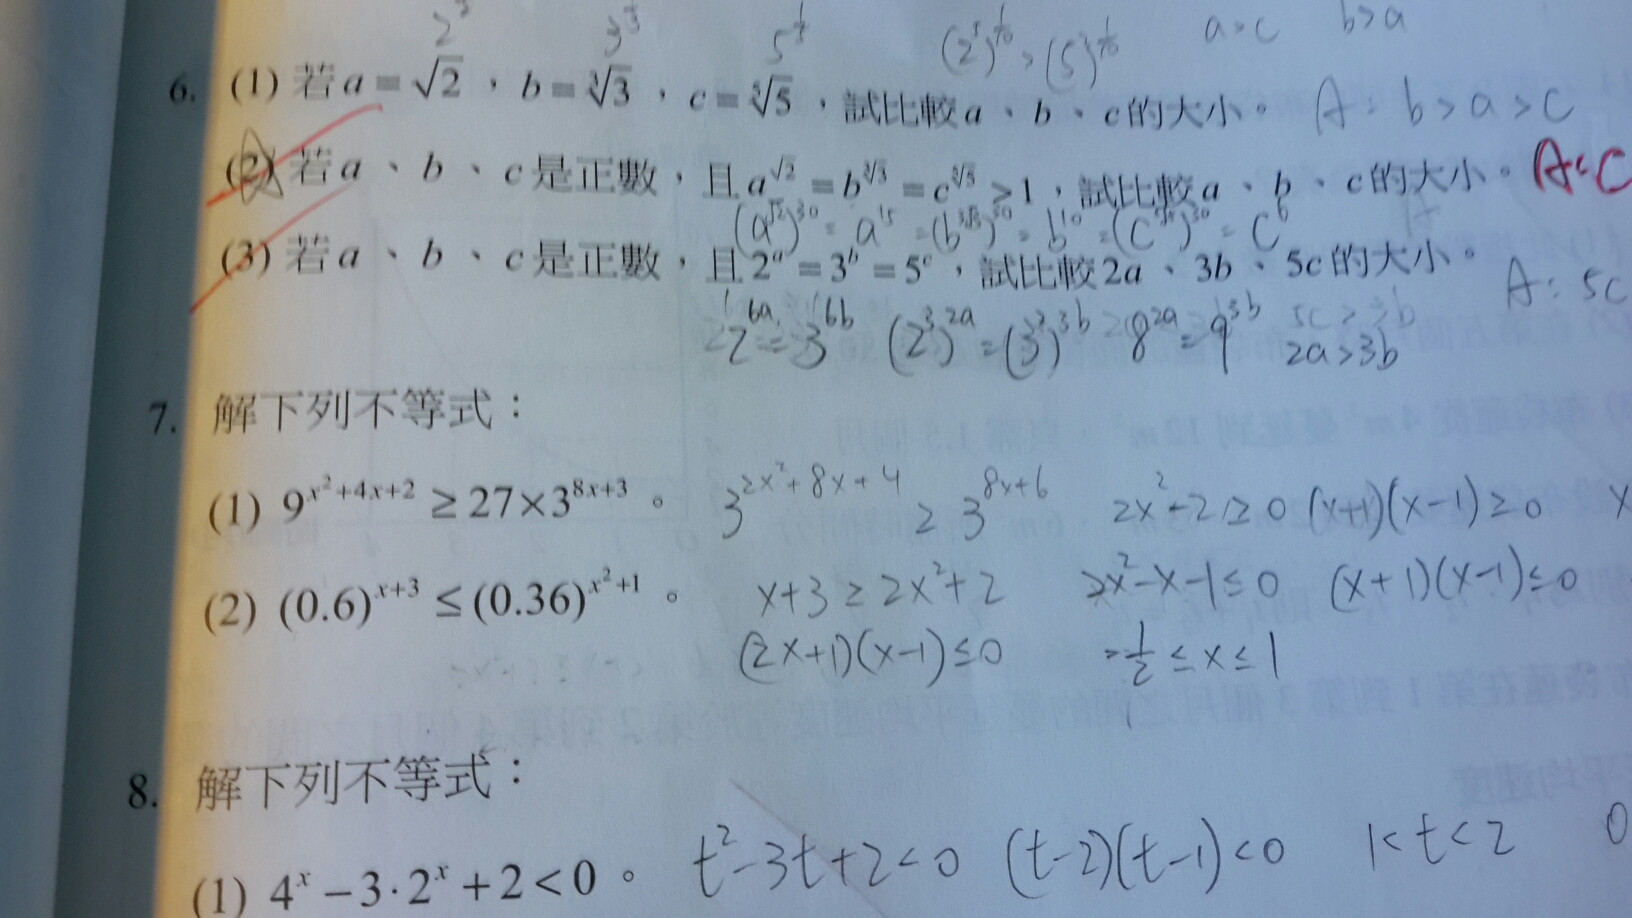 2 3 5 (2⁵)^(1/10) > (5²)^(1/10) a>c b>a
6. (1) 若 a=√2，b=∛3，c=⁵√5，試比較 a、b、c 的大小。 A: b>a>c
(2) 若 a、b、c 是正數，且 a^√2=b^∛3=c^⁵√5>1，試比較 a、b、c 的大小。 A: C
(a^√2)^30 = a^15 = (b^∛3)^30 = b^10 = (c^⁵√5)^30 = c^6
(3) 若 a、b、c 是正數，且 2^a=3^b=5^c，試比較 2a、3b、5c 的大小。 A: 5c
2^6a = 3^6b (2³)^2a = (3²)^3b 8^2a = 9^3b 5c > 3b
2a>3b
7. 解下列不等式：
(1) 9^(x²+4x+2) ≥ 27×3^(8x+3)。 3^(2x²+8x+4) ≥ 3^(8x+6) 2x²-2≥0 (x+1)(x-1)≥0 x
(2) (0.6)^(x+3) ≤ (0.36)^(x²+1)。 x+3≥2x²+2 2x²-x-1≤0 (x+1)(x-1)≤0
(2x+1)(x-1)≤0 -1/2≤x≤1
8. 解下列不等式：
(1) 4^x-3·2^x+2<0。 t²-3t+2<0 (t-2)(t-1)<0 1<t<2 0